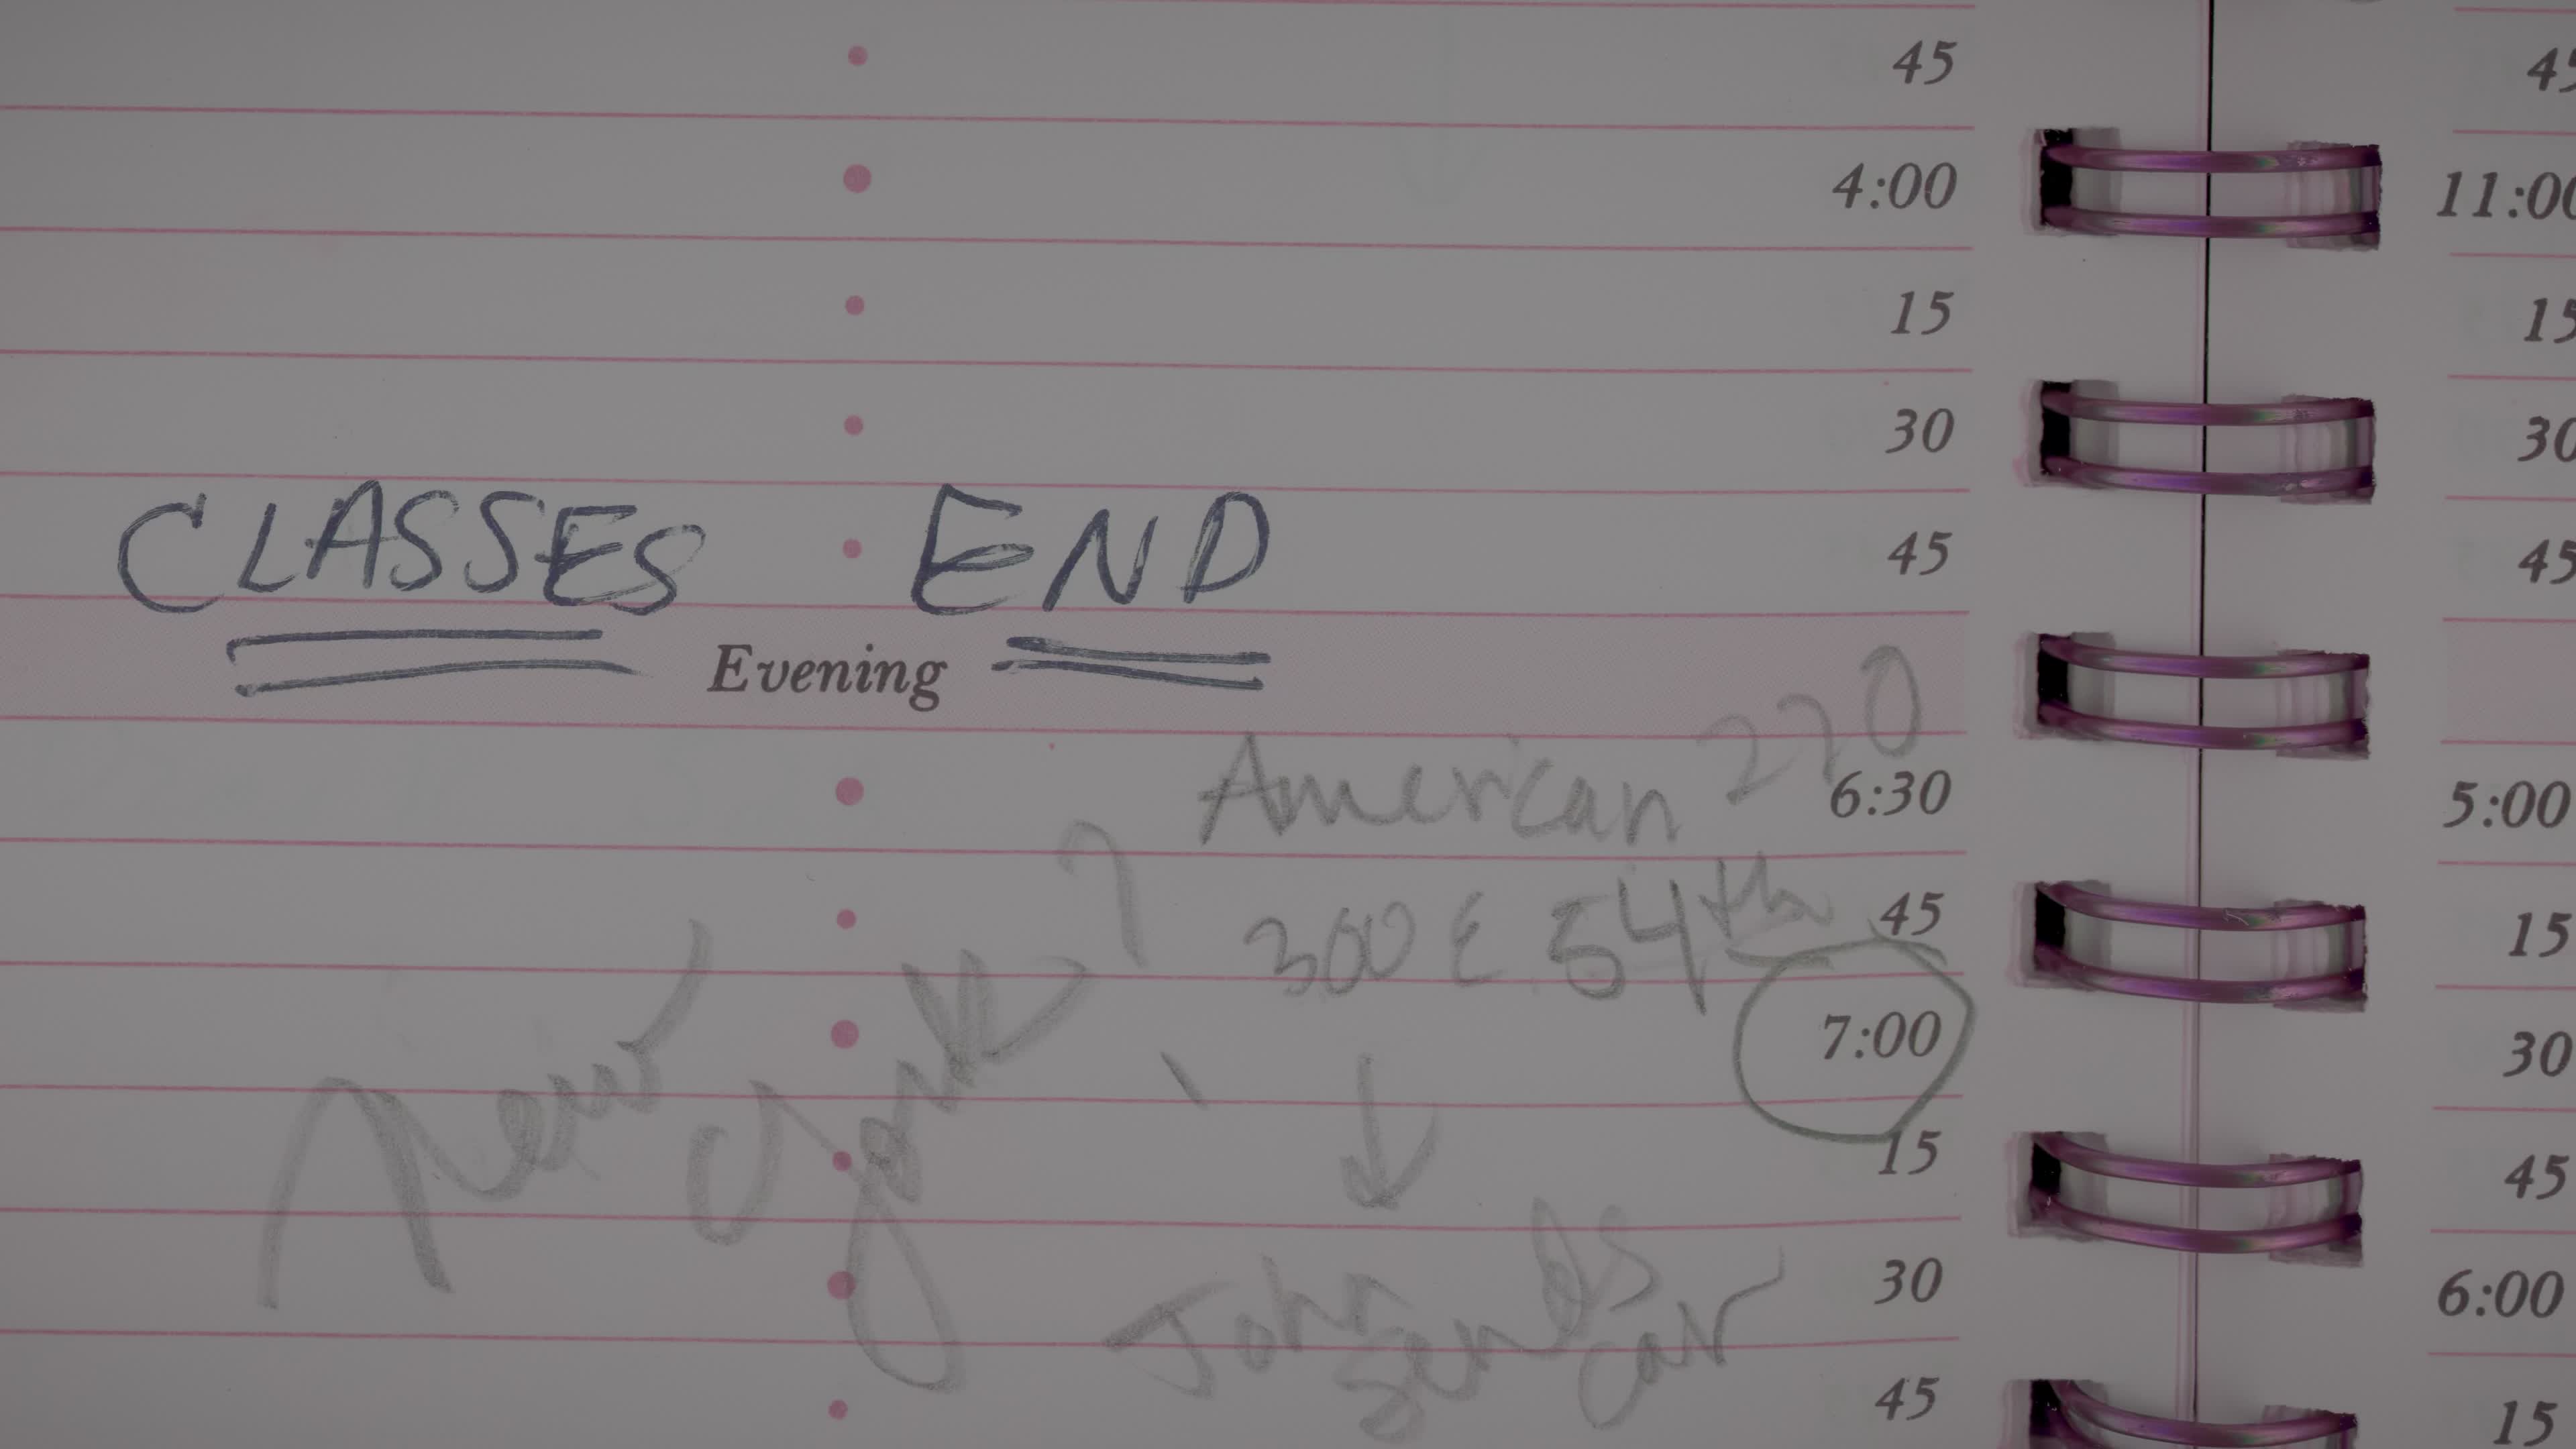 45 45
4:00 11:00
15 15
30 30
CLASSES END 45 45
Evening
American 220
6:30 5:00
300 E 54th 45 15
New York? 7:00 30
15 45
30 6:00
John Sends Car
45 15